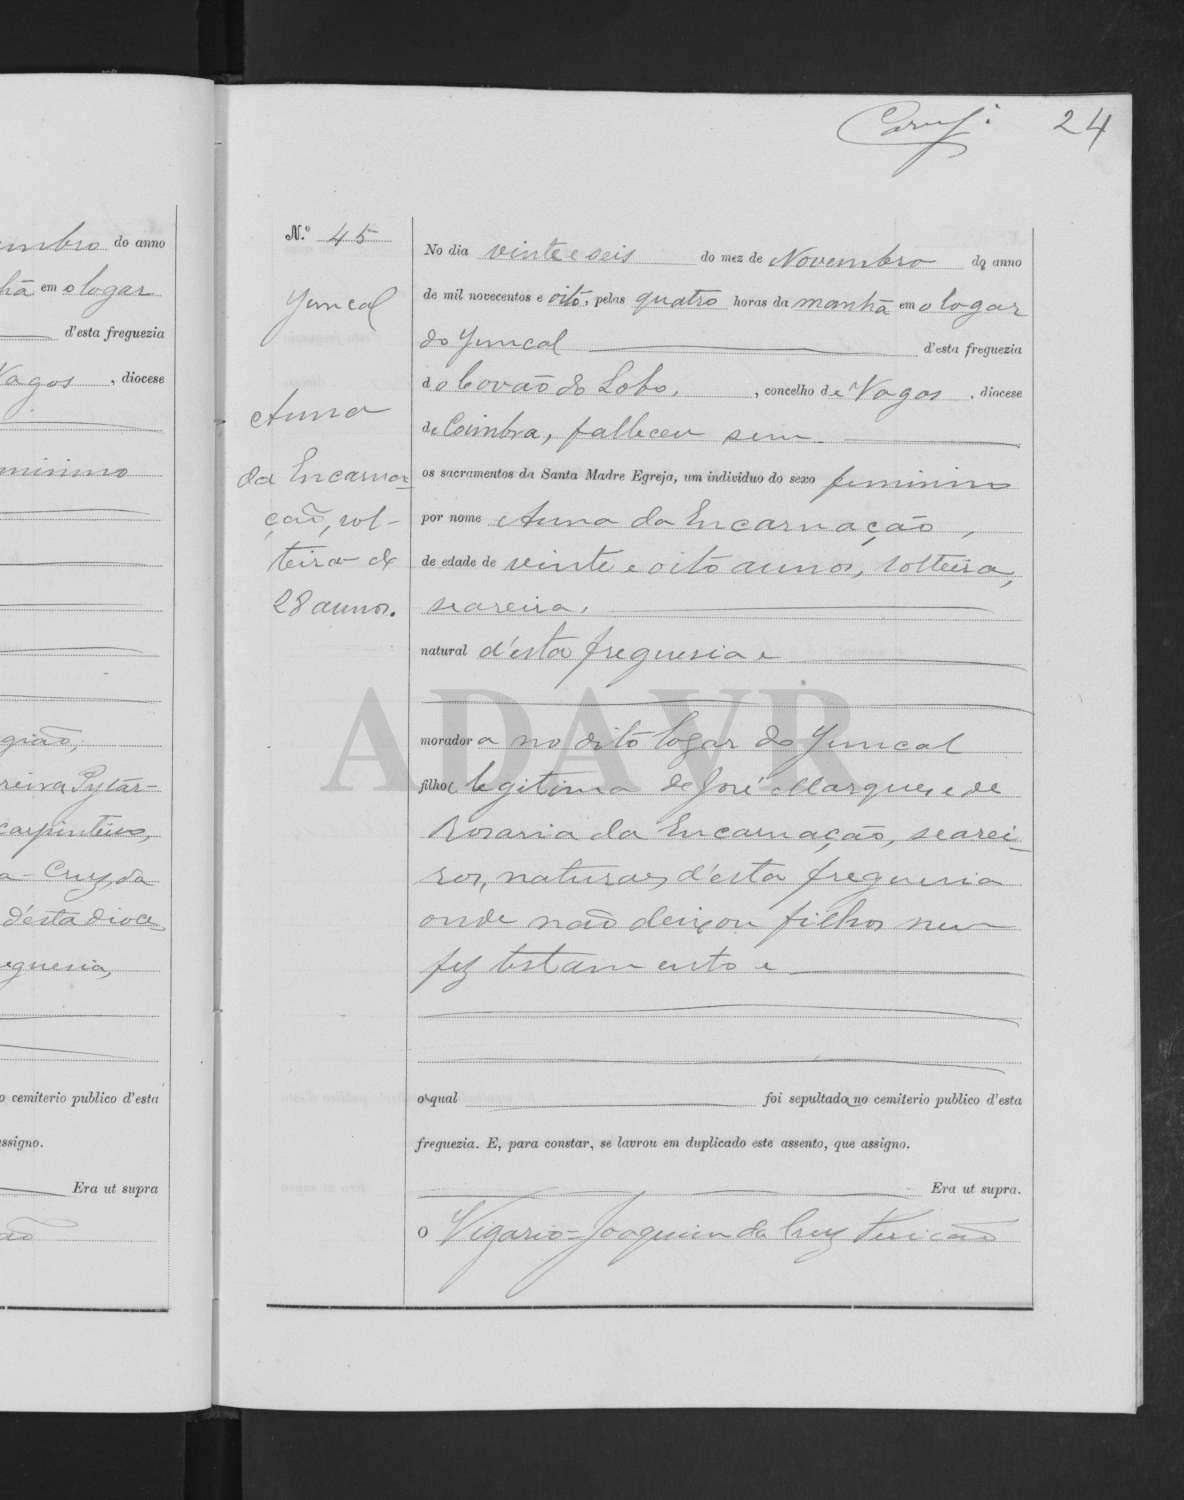 24
umbro do anno
hã em o logar
d'esta freguezia
Vagos, diocese
minino
gião,
reira Pytár-
carpinteiro,
a-Cruz, da
d'ésta dioce-
eguesia,
o cemiterio publico d'esta
assigno.
Era ut supra
ão
N.º 45
Juncal
Anna
da Encarna-
ção, sol-
teira de
28 annos.
No dia vinte e seis do mez de Novembro do anno
de mil novecentos e oito, pelas quatro horas da manhã em o logar
do Juncal d'esta freguezia
do Covão do Lobo, concelho de Vagos, diocese
de Coimbra, falleceu sem
os sacramentos da Santa Madre Egreja, um individuo do sexo feminino
por nome Anna da Encarnação,
de edade de vinte e oito annos, solteira,
seareira,
natural d'ésta freguesia e
moradora no dito logar do Juncal
filha legitima de José Marques e de
Rosaria da Encarnação, searei-
ros, naturaes d'ésta freguesia
onde não deixou filhos nem
fez testamento e
o qual foi sepultado no cemiterio publico d'esta
freguezia. E, para constar, se lavrou em duplicado este assento, que assigno.
Era ut supra.
O Vigario = Joaquim da Cruz Pericão
ADAVR